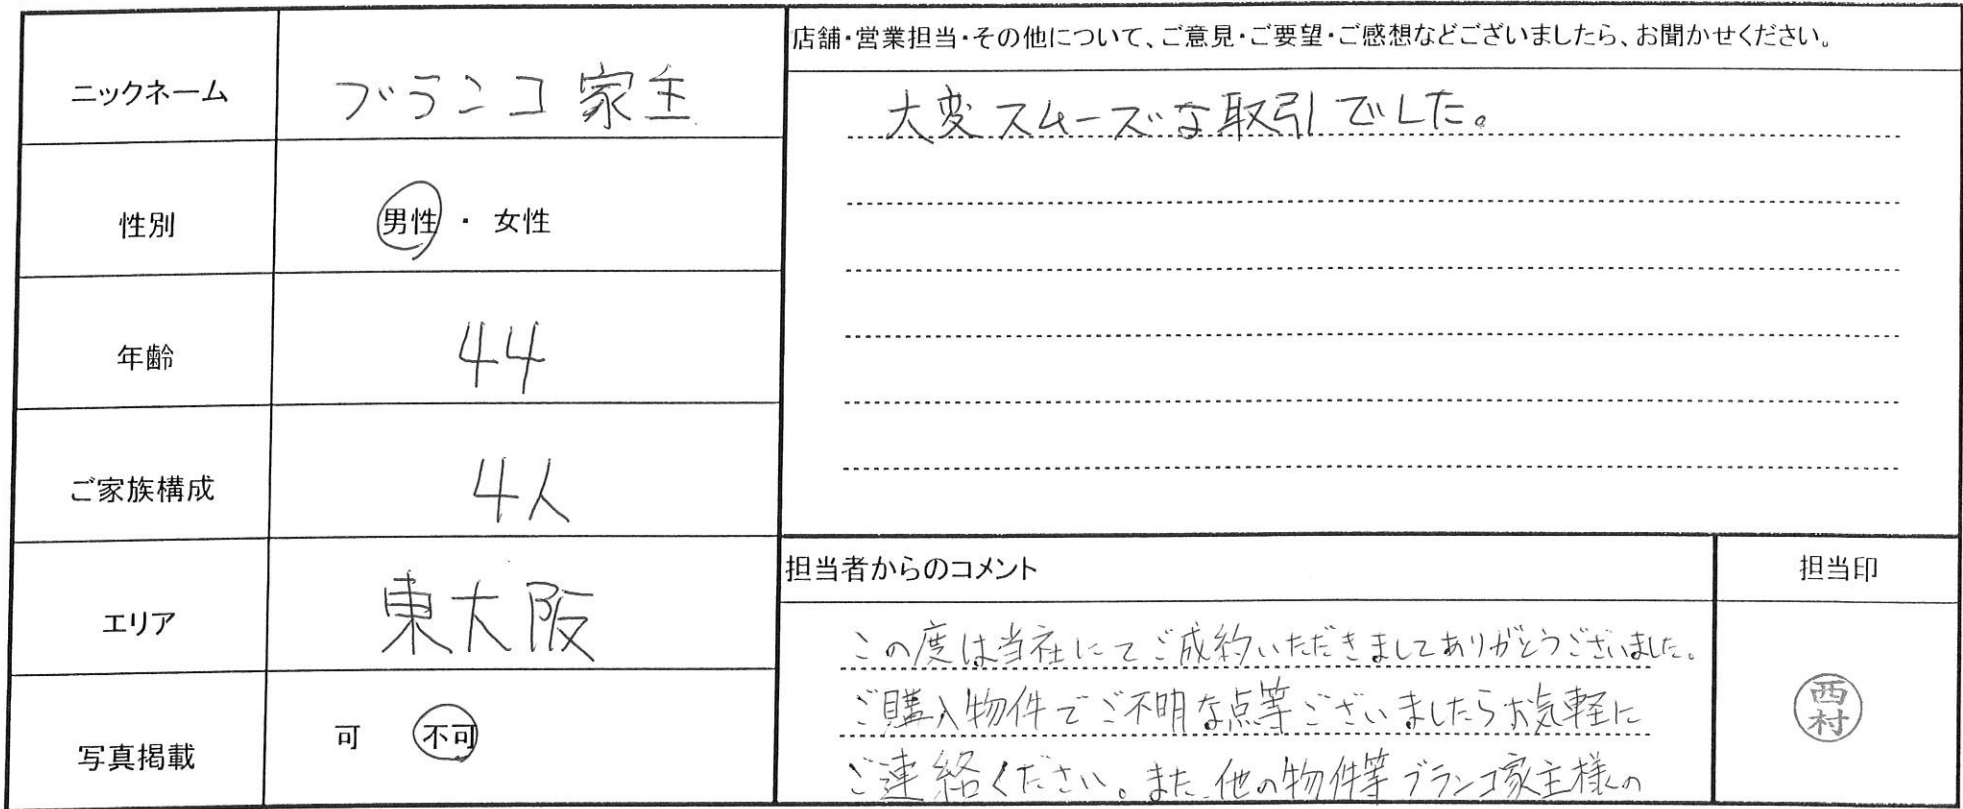 ニックネーム ブランコ家主
性別 男性 ・ 女性
年齢 44
ご家族構成 4人
エリア 東大阪
写真掲載 可 不可
店舗・営業担当・その他について、ご意見・ご要望・ご感想などございましたら、お聞かせください。
大変スムーズな取引でした。
担当者からのコメント
この度は当社にてご成約いただきましてありがとうございました。
ご購入物件でご不明な点等ございましたらお気軽に
ご連絡ください。また、他の物件等ブランコ家主様の
担当印
西村